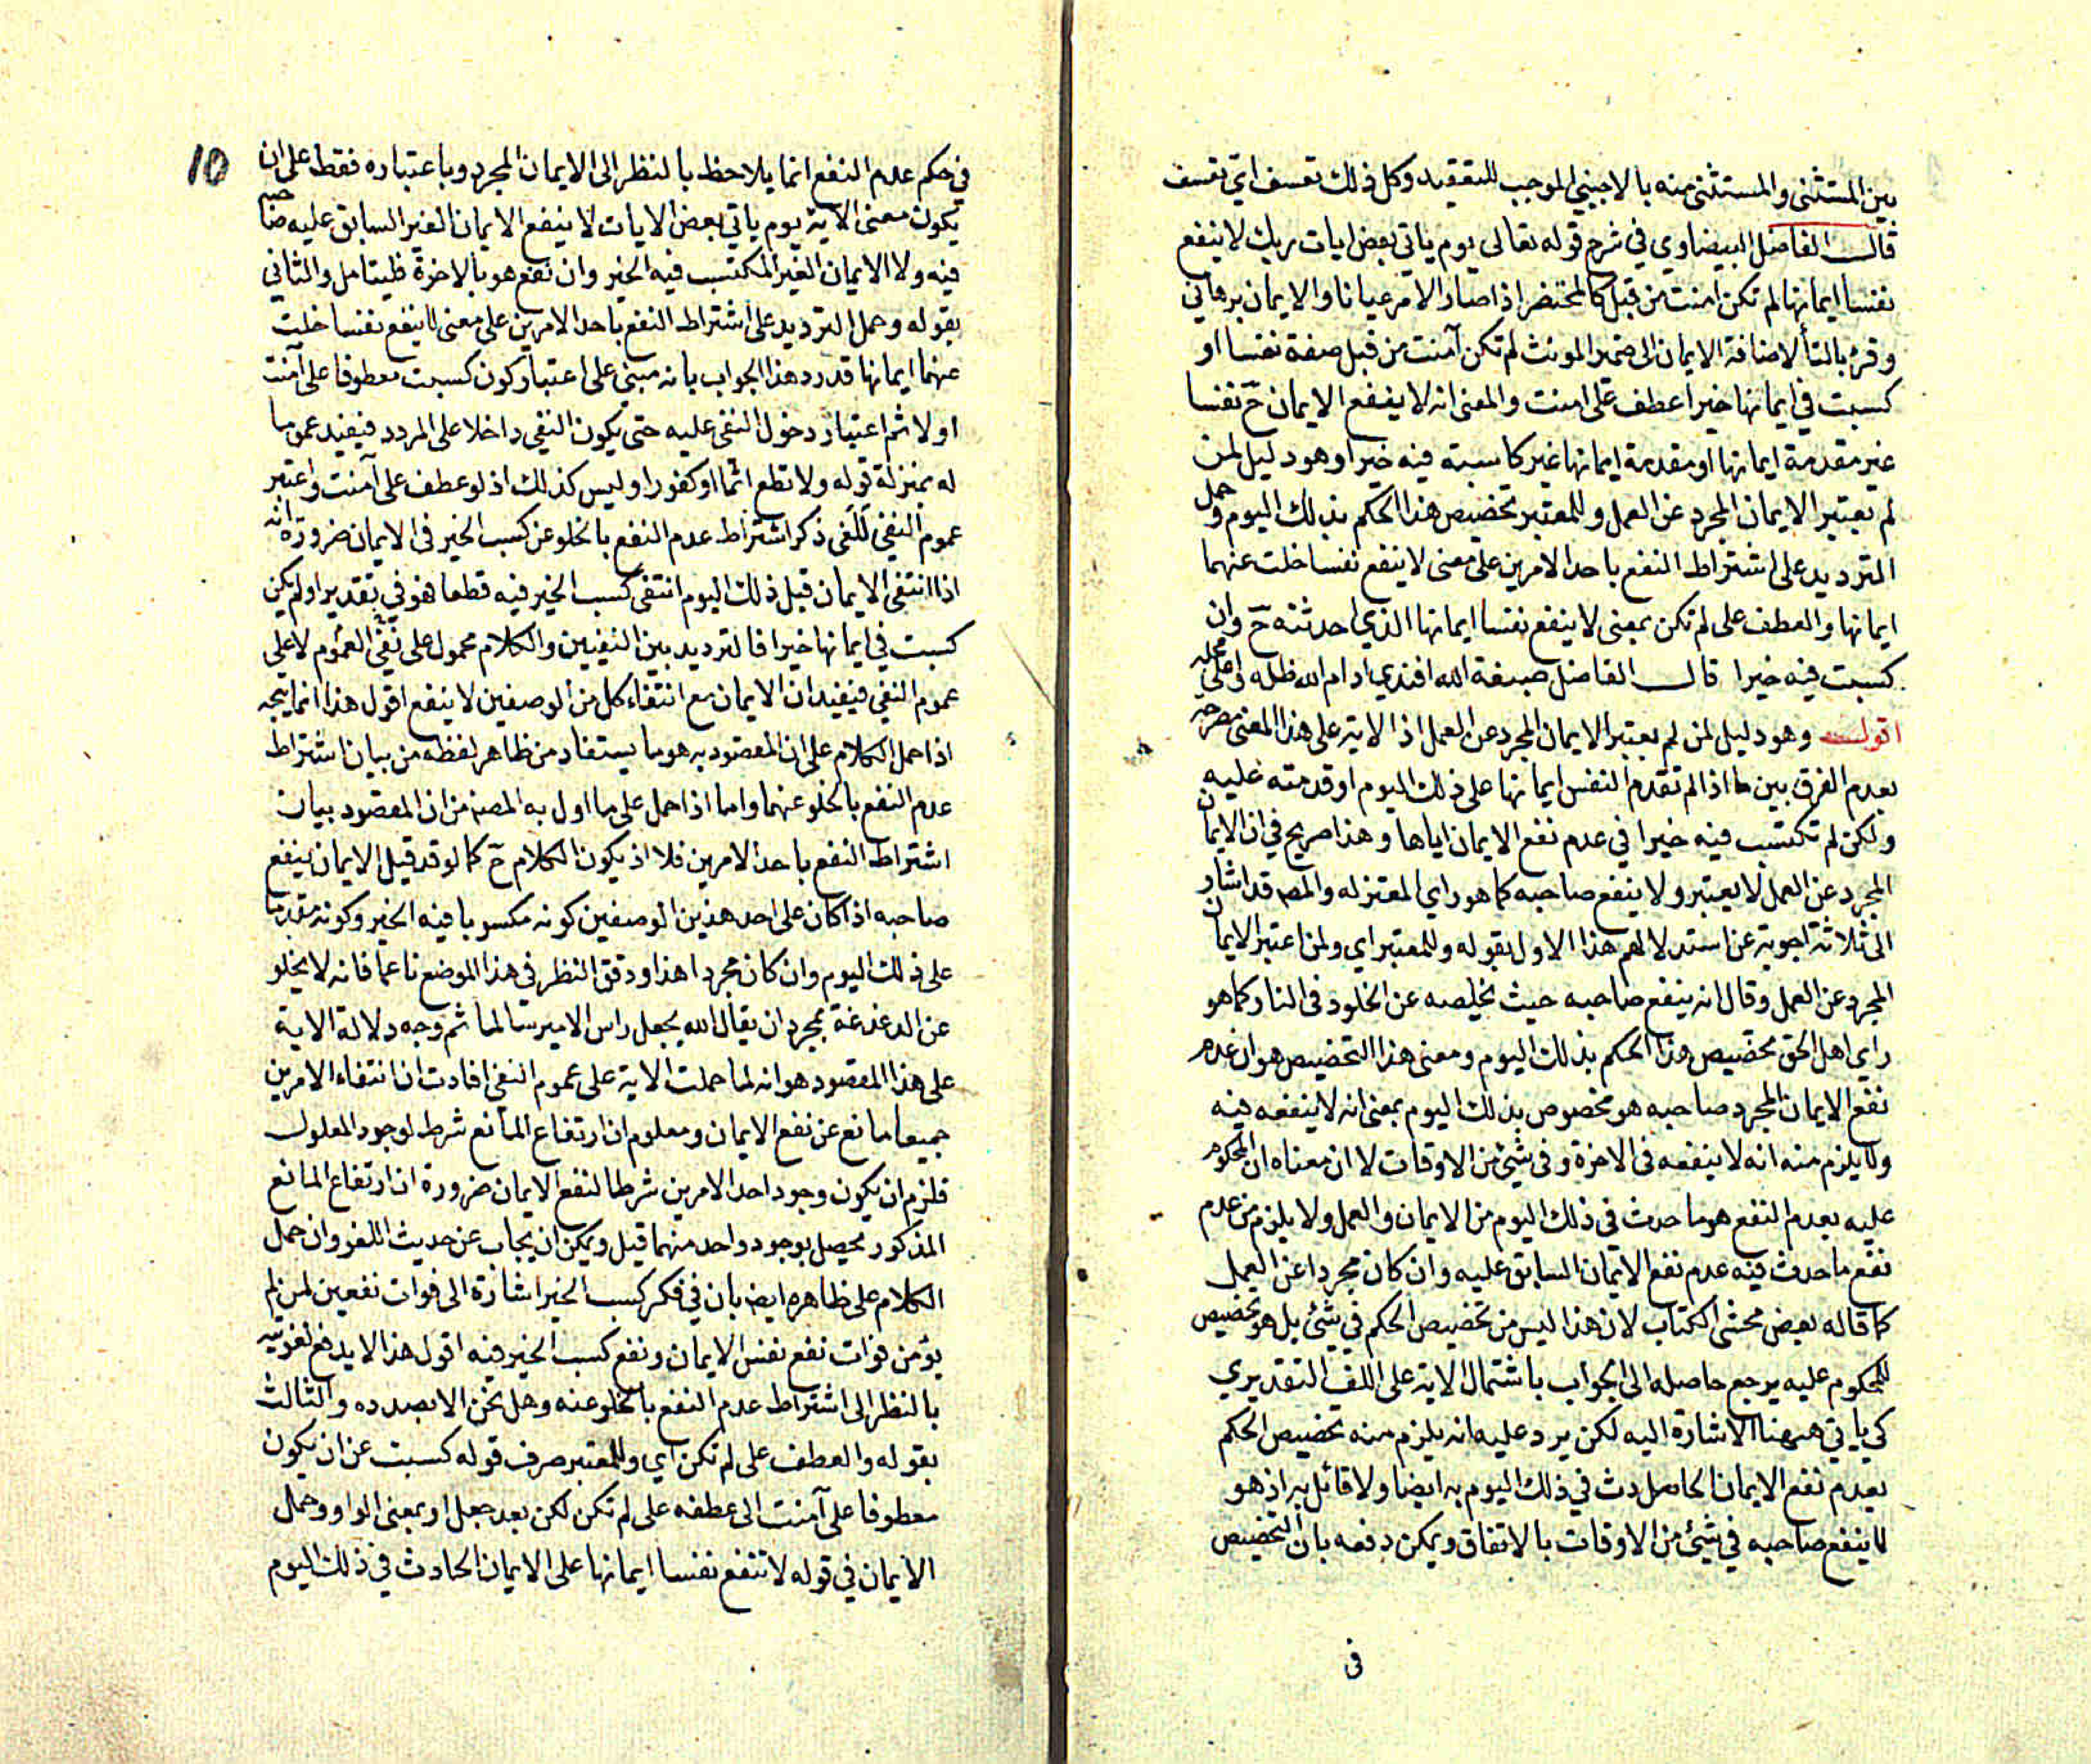 بين المستثنى والمستثنى منه بالاجنبي الموجب للتعقيد وكل ذلك تعسف اي تعسف
قال الفاضل البيضاوي في شرح قوله تعالى يوم ياتي بعض ايات ربك لا ينفع
نفسا ايمانها لم تكن امنت من قبل كالمحتضر اذا صار الامر عيانا والايمان برهاني
وقرئ بالتأ لاضافة الايمان الى ضمير المونث لم تكن آمنت من قبل صفة نفسا او
كسبت في ايمانها خيرا عطف على امنت والمعنى انه لا ينفع الايمان ح نفسا
غير مقدمة ايمانها او مقدمة ايمانها غير كاسبة فيه خيرا وهو دليل لمن
لم يعتبر الايمان المجرد عن العمل وللمعتبر تخصيص هذا الحكم بذلك اليوم وحمل
الترديد على اشتراط النفع باحد الامرين على معنى لا ينفع نفسا خلت عنهما
ايمانها والعطف على لم تكن بمعنى لا ينفع نفسا ايمانها الذي احدثته ح وان
كسبت فيه خيرا قال الفاضل صبغة الله افندي ادام الله ظله
اقول وهو دليل لمن لم يعتبر الايمان المجرد عن العمل اذ الاية على هذا المعنى مصرحه
بعدم الفرق بين ما اذا لم تقدم النفس ايمانها على ذلك اليوم او قدمته عليه
ولكن لم تكتسب فيه خيرا في عدم نفع الايمان اياها وهذا صريح في ان الايمان
المجرد عن العمل لا يعتبر ولا ينفع صاحبه كما هو راي المعتزله والمصـ قد اشار
الى ثلاثة اجوبة عن استدلالهم هذا الاول بقوله وللمعتبر اي ولمن اعتبر الايمان
المجرد عن العمل وقال انه ينفع صاحبه حيث يخلصه عن الخلود في النار كما هو
راي اهل الحق تخصيص هذا الحكم بذلك اليوم ومعنى هذا التخصيص هو ان عدم
نفع الايمان المجرد صاحبه هو مخصوص بذلك اليوم بمعنى انه لا ينفعه فيه
ولا يلزم منه انه لا ينفعه في الاخرة وفي شيئ من الاوقات لا ان معناه ان المحكوم
عليه بعدم النفع هو ما حدث في ذلك اليوم من الايمان والعمل ولا يلزم من عدم
نفع ما حدث فيه عدم نفع الايمان السابق عليه وان كان مجردا عن العمل
كما قاله بعض محشى الكتاب لان هذا ليس من تخصيص الحكم في شيئ بل هو تخصيص
للمحكوم عليه يرجع حاصله الى الجواب باشتمال الاية على اللف التقديري
كي ياتي ههنا الاشارة اليه لكن يرد عليه انه يلزم منه تخصيص الحكم
بعدم نفع الايمان الحادث في ذلك اليوم به ايضا ولا قائل به اذ هو
لا ينفع صاحبه في شيئ من الاوقات بالاتفاق ويمكن دفعه بان التخصيص
في
10
في حكم عدم النفع انما يلاحظ بالنظر الى الايمان المجرد وباعتباره فقط على ان
يكون معنى الاية يوم ياتي بعض الايات لا ينفع الايمان الغير السابق عليه صاحبه
فيه ولا الايمان الغير المكتسب فيه الخير وان نفع هو بالاخرة فليتامل والثاني
بقوله وحمل الترديد على اشتراط النفع باحد الامرين على معنى لا ينفع نفسا خلت
عنهما ايمانها قد رد هذا الجواب بانه مبني على اعتبار كون كسبت معطوفا على آمنت
اولا ثم اعتبار دخول النفي عليه حتى يكون النفي داخلا على المردد فيفيد عموما
له بمنزلة قوله ولا تطع اثما او كفورا وليس كذلك اذ لو عطف على آمنت واعتبر
عموم النفي للغى ذكر اشتراط عدم النفع بالخلو عن كسب الخير في الايمان ضرورة انه
اذا انتفى الايمان قبل ذلك اليوم انتفى كسب الخير فيه قطعا فهو في تقدير او لم يكن
كسبت في ايمانها خيرا فالترديد بين النفيين والكلام محمول على نفي العموم لا على
عموم النفي فيفيد ان الايمان مع انتفاء كل من الوصفين لا ينفع اقول هذا انما يتجه
اذا حمل الكلام على ان المقصود به هو ما يستفاد من ظاهر لفظه من بيان اشتراط
عدم النفع بالخلو عنهما واما اذا حمل على ما اول به المصـ من ان المقصود بيان
اشتراط النفع باحد الامرين فلا اذ يكون الكلام ح كما لو قد قيل الايمان ينفع
صاحبه اذا كان على احد هذين الوصفين كونه مكسوبا فيه الخير وكونه مقدما
على ذلك اليوم وان كان مجردا هذا ودقق النظر في هذا الموضع ناعما فانه لا يخلو
عن الدغدغة بمجرد ان يقال الله يجعل راس الامير سالما ثم وجه دلالة الاية
على هذا المقصود هو انه لما حملت الاية على عموم النفي افادت ان انتفاء الامرين
جميعا مانع عن نفع الايمان ومعلوم ان ارتفاع المانع شرط لوجود المعلول
فلزم ان يكون وجود احد الامرين شرطا لنفع الايمان ضرورة ان ارتفاع المانع
المذكور يحصل بوجود واحد منهما قيل ويمكن ان يجاب عن حديث اللغو وان حمل
الكلام على ظاهره ايضا بان في ذكر كسب الخير اشارة الى فوات نفعين لمن لم
يؤمن فوات نفع نفس الايمان ونفع كسب الخير فيه اقول هذا لا يدفع لغويته
بالنظر الى اشتراط عدم النفع بالخلو عنه وهل نحن الا بصدده والثالث
بقوله والعطف على لم تكن اي وللمعتبر صرف قوله كسبت عن ان يكون
معطوفا على آمنت الى عطفه على لم تكن لكن بعد جعل او بمعنى الواو وحمل
الايمان في قوله لا تنفع نفسا ايمانها على الايمان الحادث في ذلك اليوم